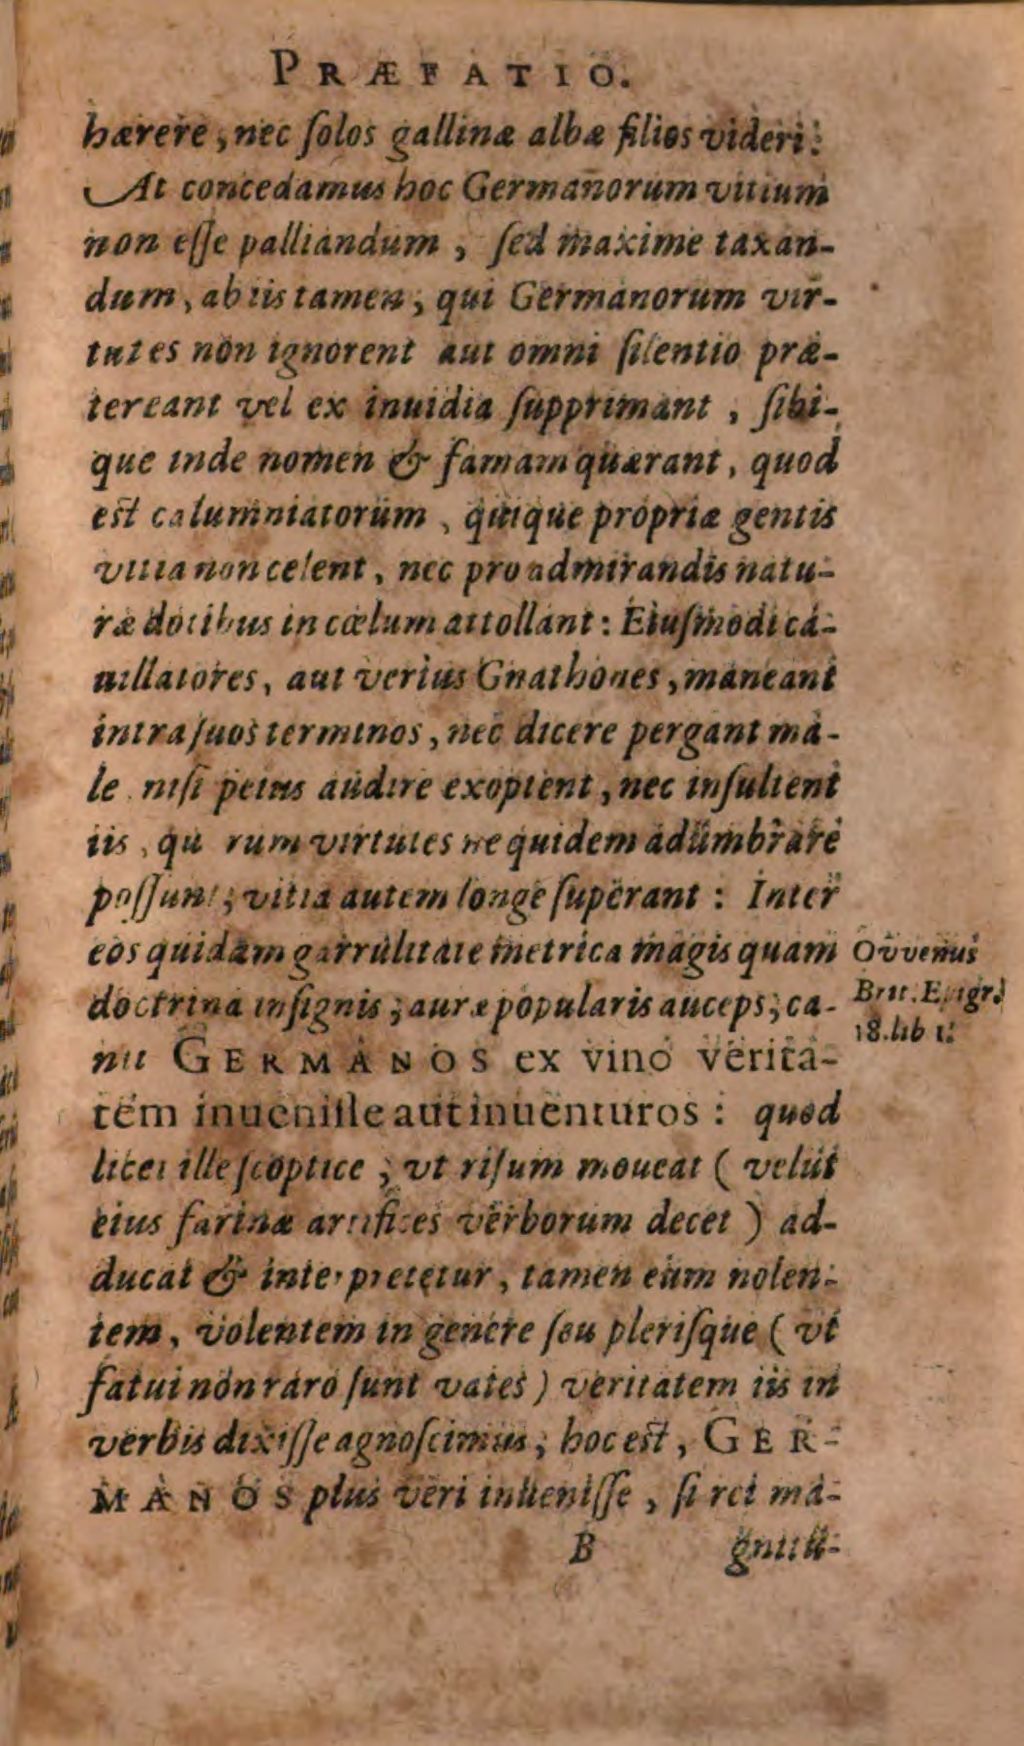 PRÆFATIO.
hærere, nec ſolos gallinæ albæ filios videri.
At concedamus hoc Germanorum vitium
non eſſe palliandum, ſed maxime taxan-
dum, ab iis tamen, qui Germanorum vir-
tutes non ignorent aut omni ſilentio præ-
tereant vel ex inuidia ſupprimant, ſibi-
que inde nomen & famam quærant, quod
eſt calumniatorum, quique propriæ gentis
vitia non celent, nec pro admirandis natu-
ræ dotibus in cœlum attollant: Eiuſmodi ca-
uillatores, aut verius Gnathones, maneant
intra ſuos terminos, nec dicere pergant ma-
le niſi peius audire exoptent, nec inſultent
iis, qu rum virtutes ne quidem adumbrare
poſſunt; vitia autem longe ſuperant: Inter
eos quidam garrulitate metrica magis quam
doctrina inſignis; auræ popularis auceps; ca-
nit GERMANOS ex vino verita-
tem inueniſſe aut inuenturos: quod
licet ille ſcoptice, vt riſum moueat (velut
eius farinæ artifices verborum decet) ad-
ducat & interpretetur, tamen eum nolen-
tem, volentem in genere ſeu pleriſque (vt
fatui non raro ſunt vates) veritatem iis in
verbis dixiſſe agnoſcimus, hoc eſt, GER-
MANOS plus veri inueniſſe, ſi rei ma-
B gnitu-
Ovvenus
Brit. Epigr.
18. lib 1.